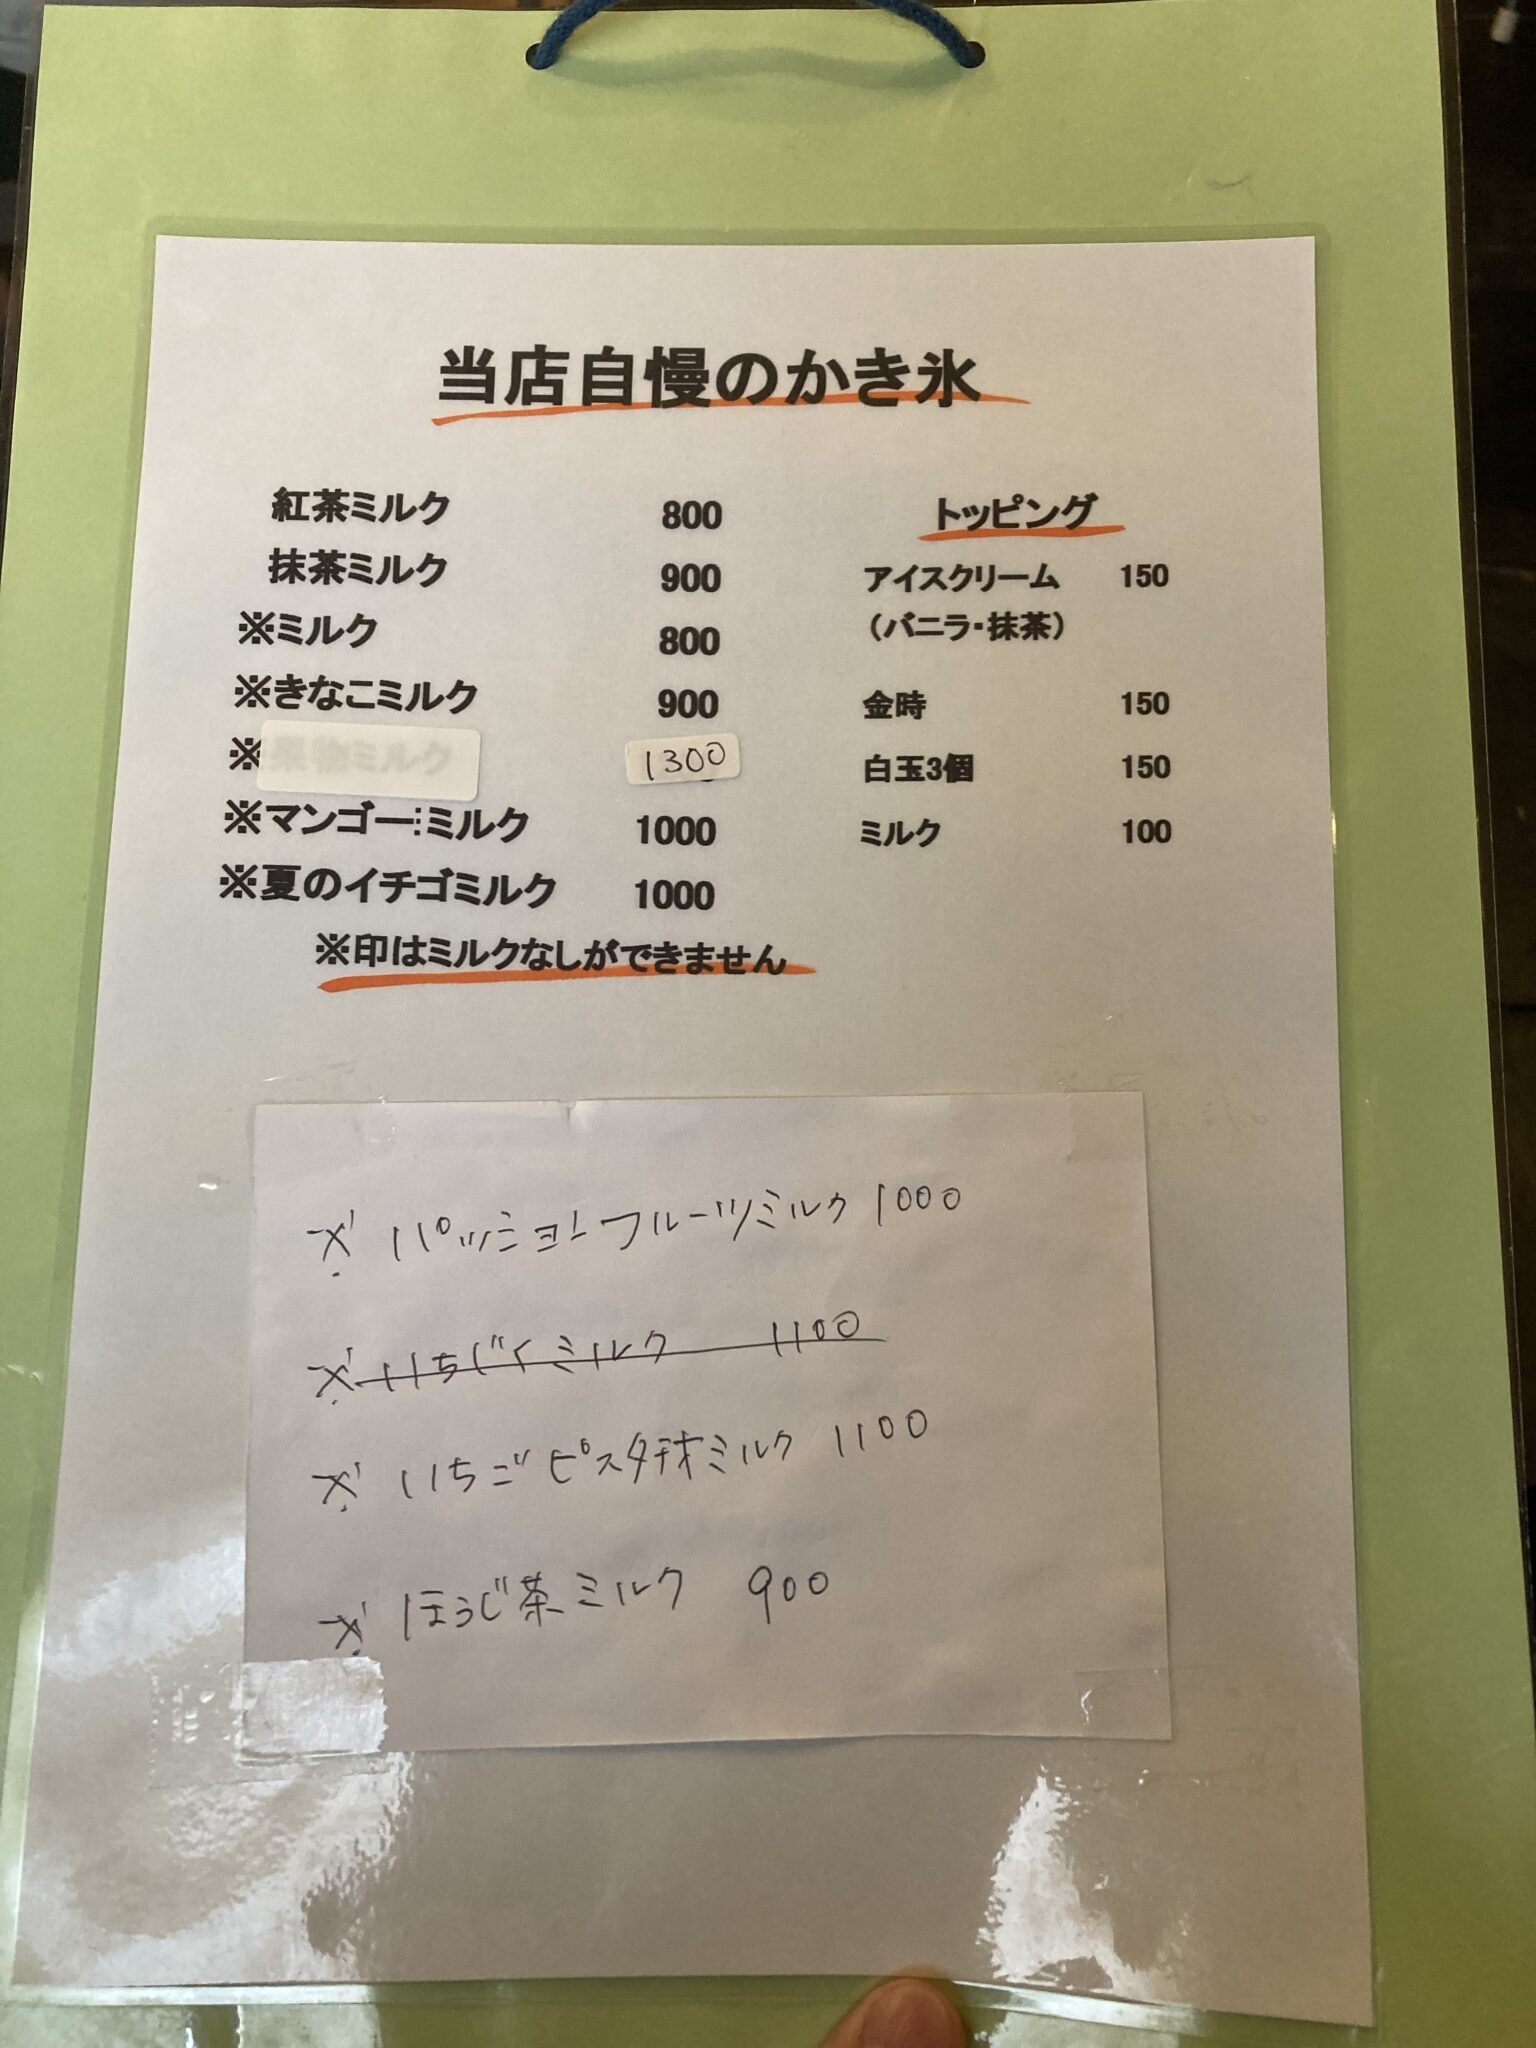 当店自慢のかき氷
紅茶ミルク 800
抹茶ミルク 900
※ミルク 800
※きなこミルク 900
※ 1300
※マンゴーミルク 1000
※夏のイチゴミルク 1000
※印はミルクなしができません
トッピング
アイスクリーム 150
（バニラ・抹茶）
金時 150
白玉3個 150
ミルク 100
※ パッションフルーツミルク 1000
※ いちじくミルク 1100
※ いちごピスタチオミルク 1100
※ ほうじ茶ミルク 900